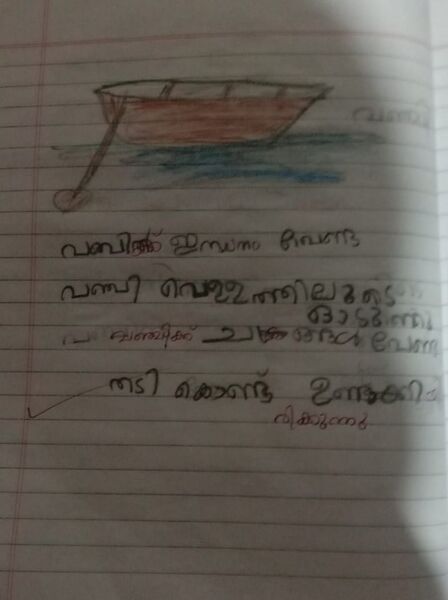 വഞ്ചിക്ക് ഇന്ധനം വേണ്ട
വഞ്ചി വെള്ളത്തിലൂടെ
ഓടുന്നു
വഞ്ചിക്ക് ചക്രങ്ങൾ വേണ്ട
തടി കൊണ്ട് ഉണ്ടാക്കി
വിക്കുന്നു